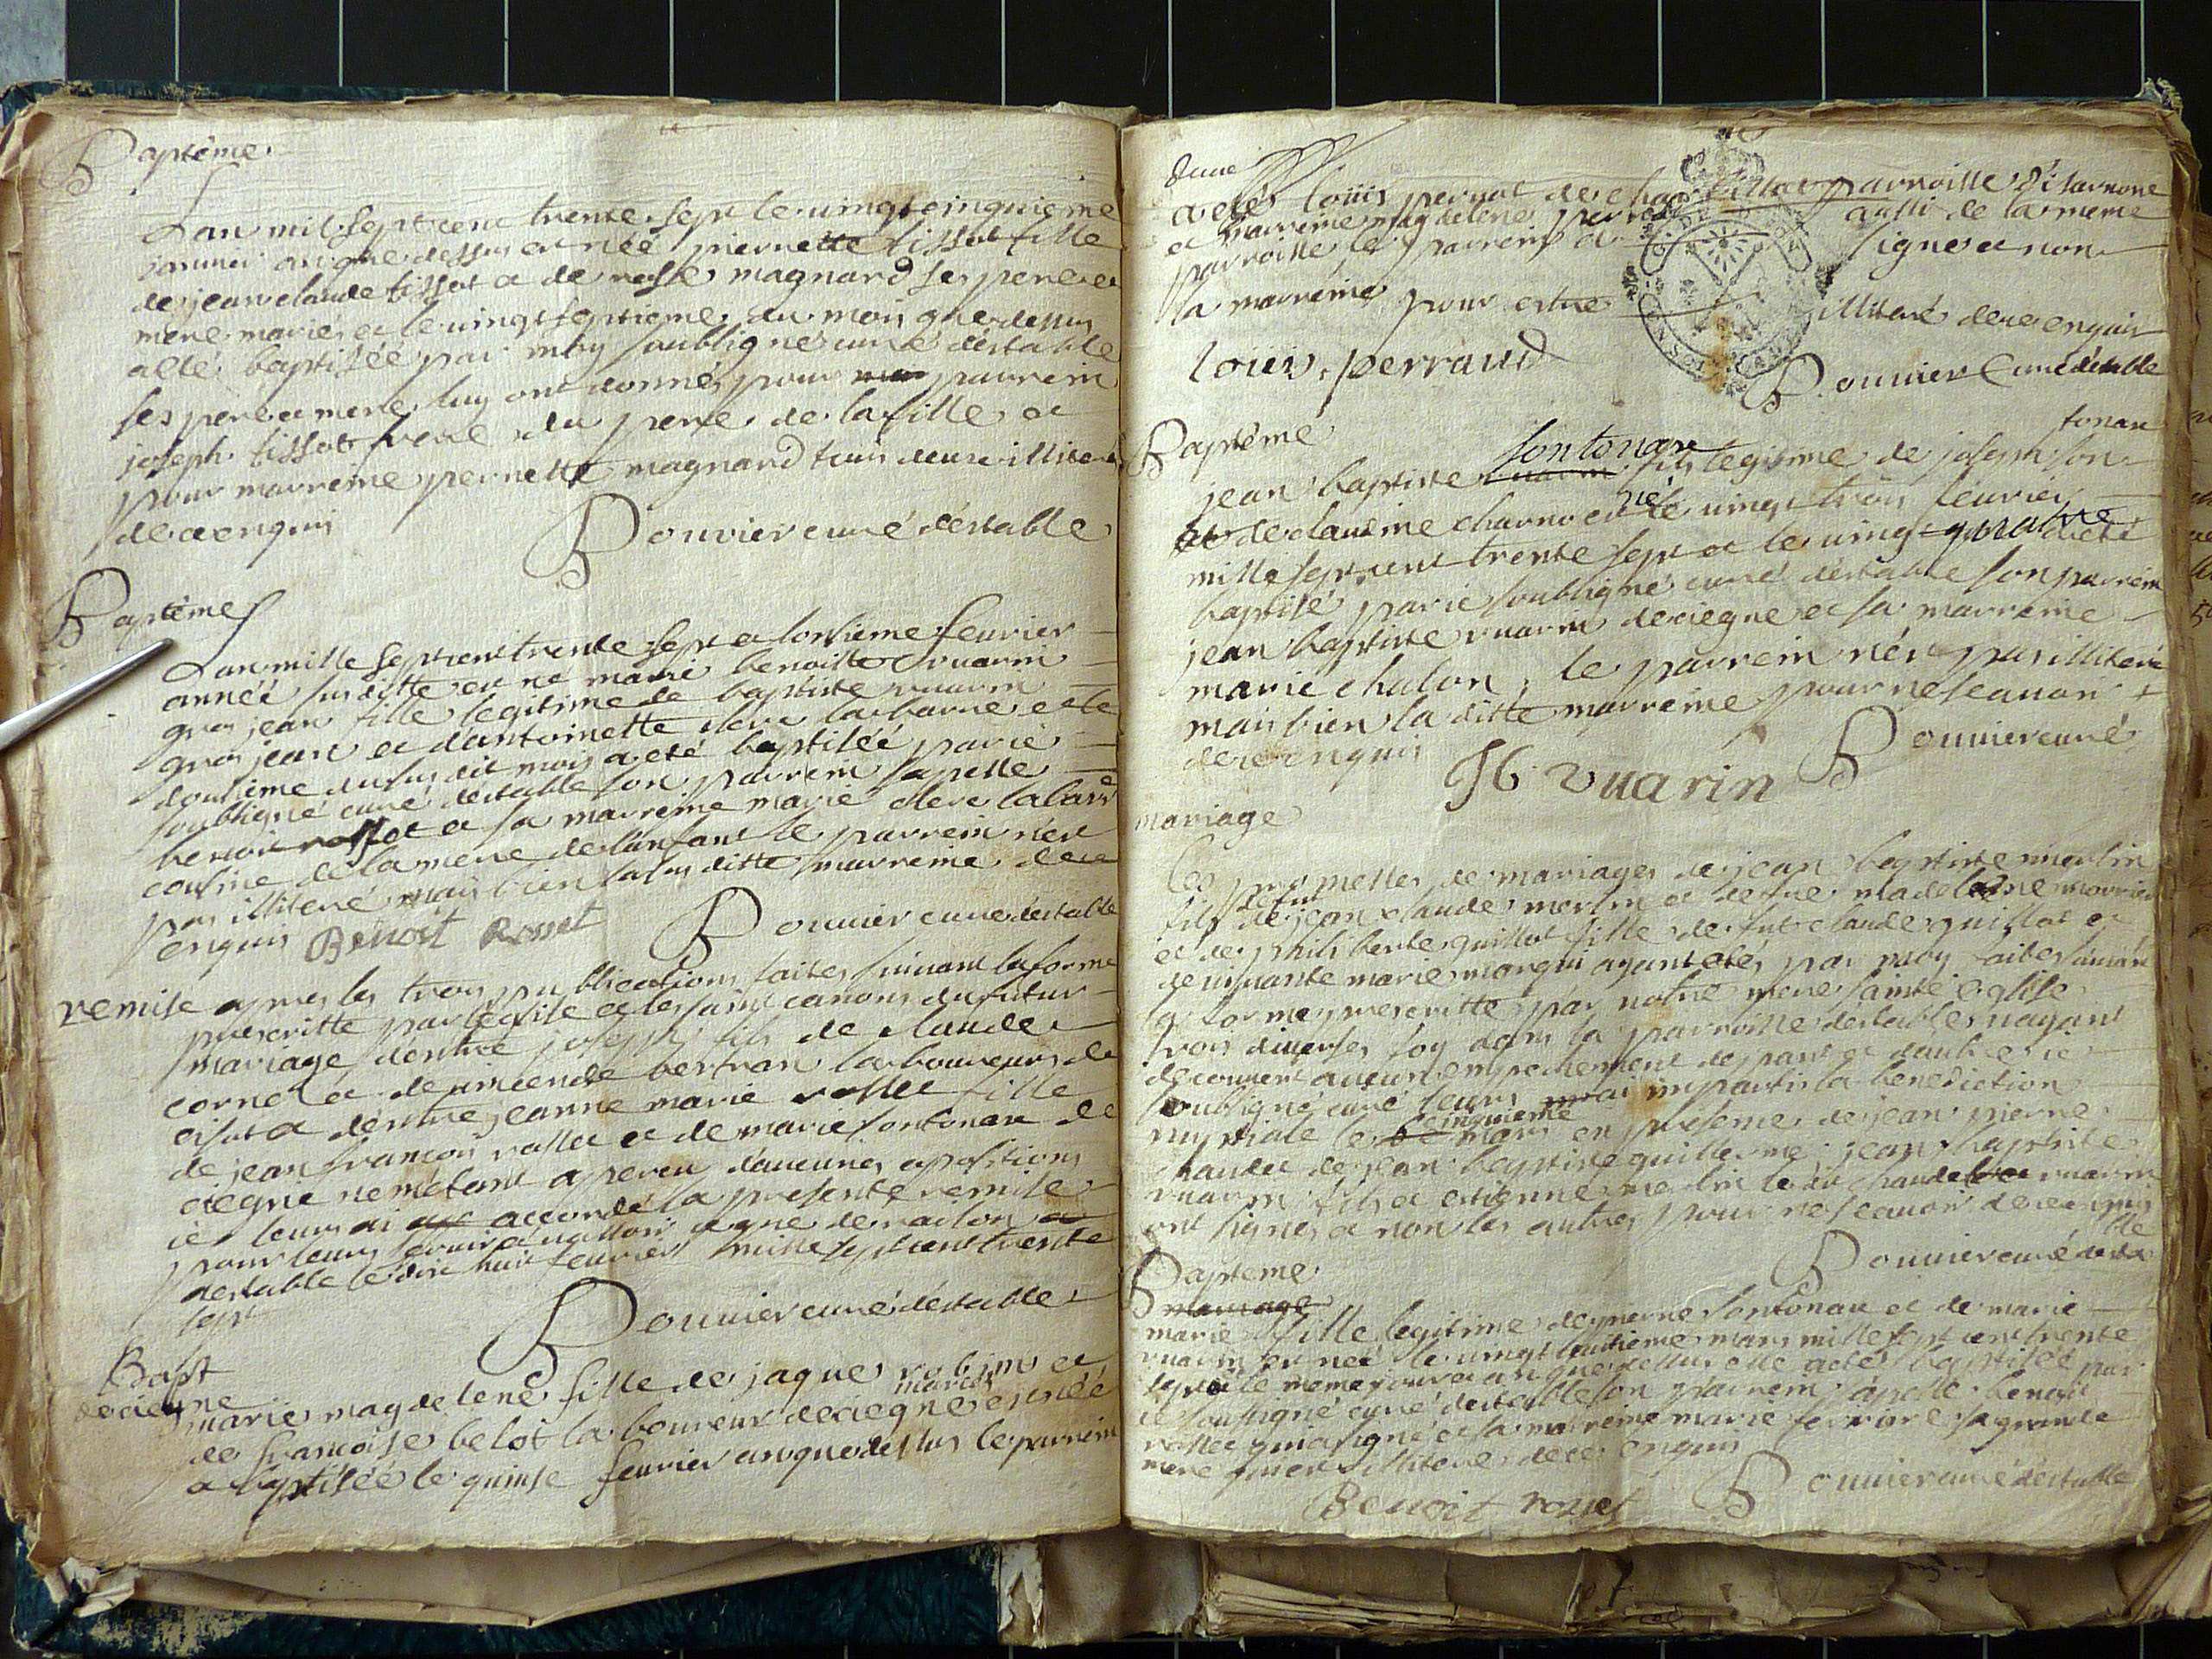 Baptême
Lan mil sept cent trente sept le vingt cinquieme
janvier an que dessus et née pierrette tissot fille
de jean claude tissot et de rose magnard ses pere et
mere mariés et le vingt septieme du mois que dessus
a été baptisée par moy soubsigné curé déstable
ses pere et mere luy ont donnés pour parrein
joseph tissot frere du pere de la fille et
pour marreine pernette magnard tous deux illiterés
de ce enquis
Bouvier curé déstable
Baptême
Lan mille sept cent trente sept et lonsieme fevrier
année susditte est né marie benoitte vuarin
gros jean fille legitime de baptiste vuarin
gros jean et dantoinette clerc labarre et le
dousieme du susdit mois a eté baptisée par ie
soubsigné curé déstable son parrein sapelle
benoit rosset et sa marreine marie clerc labarre
cousine de la mere de lanfant le parrein nest
pas illiteré mais bien la susditte marreine de ce
enquis Benoit Rosset Bouvier curé déstable
remise apres les trois publications faites suivant la forme
prescritte par léglise et les saint canons du futur
mariage dentre joseph fils de claude
cornet et de vincende bertran laboureurs de
et dentre jeanne marie vallet fille
de jean francois vallet et de marie sontonax de
ciegne ne métant aperceu daucunes opositions
ie leurs ai accordé la presente remise
pour leurs servir a valloir ce que de raison a
destable le dix huit fevrier mille sept cent trente
sept
Bouvier curé déstable
Bapt
de ciegne
marie magdelene fille de jaque robin et
mariés
de françoise belot laboureur de ciegne est née
et baptisée le quinse fevrier an que dessus le parrein
a etés louis pernot de parroisse disarnone
et marreine magdelene aussi de la meme
parroisse le parrein a signe et non
la marreine pour estre illiteré de ce enquis
louis perraud
Bouvier Curé déstable
Baptême
sontonax tonax
jean baptiste fils legisime de joseph son
né
et de claudine charnoed le vingt trois fevrier
mille sept cent trente sept et le vingt quatre a eté
baptisé par ie soubsigné curé déstable son parrein
jean baptiste vuarin de ciegne et sa marreine
marie chalon, le parrein nést pas illiteré
mais bien la ditte marreine pour ne scavoir
de ce enquis Bouvier curé
JB vuarin
mariage
Les promesses de mariages de jean baptiste merlin
de fut
fils de jean claude merlin et de fue madeleine mourier
et de philiberte guillot fille de fut claude guillot et
de vivante marie marqui ayant etés par moy faites suivant
la forme prescritte par notre mere sainte eglise
trois diverses foy dans la parroisse déstables nayant
decouvert aucun empechement de part et dautre ie
soubsigné curé leurs ai imparti la benediction
cinquieme
nuptiale le mars en presence de jean pierre
chaudet de jean baptiste guillerme jean baptiste
vuarin fils et etienne merlin le dit chaudet et vuarin
ont signes et non les autres pour ne scavoir de ce enquis
ble
Bouvier curé desta
Bapteme
mariage
marie fille legitime de pierre sontonax et de marie
vuarin est neé le vingt huitieme mars mille sept cent trente
sept et le meme jour et an que dessus elle a etés baptisée par
ie soussigné curé déstable son parrein sapelle benoit
rosset qui a signé et sa marreine marie ferriere sa grande
mere illiteré de ce enquis
Bouvier curé déstable
Benoit rosset